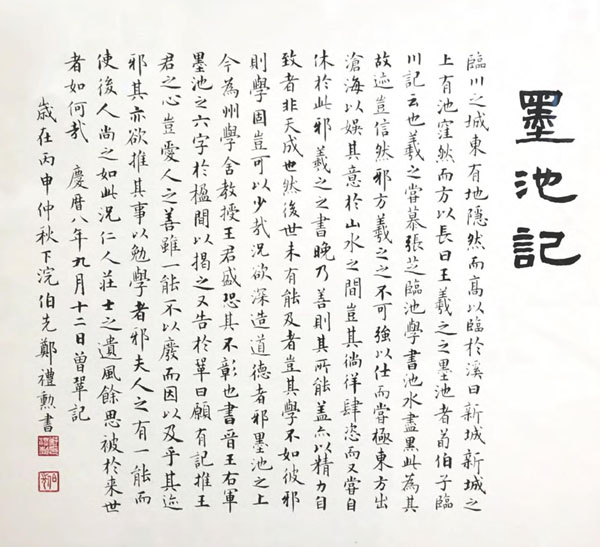 墨池記
臨川之城東有地隐然而高以臨於溪曰新城新城之
上有池窪然而方以長曰王羲之之墨池者荀伯子臨
川記云也羲之嘗慕張芝臨池學書池水盡黑此為其
故迹豈信然邪方羲之之不可強以仕而嘗極東方出
滄海以娱其意於山水之間豈其徜徉肆恣而又嘗自
休於此邪羲之之書晚乃善則其所能盖亦以精力自
致者非天成也然後世未有能及者豈其學不如彼邪
則學固豈可以少哉況欲深造道德者邪墨池之上
今為州學舍教授王君盛恐其不彰也書晉王右軍
墨池之六字於楹間以揭之又告於鞏曰願有記推王
君之心豈愛人之善雖一能不以廢而因以及乎其迹
邪其亦欲推其事以勉學者邪夫人之有一能而
使後人尚之如此況仁人莊士之遺風餘思被於来世
者如何哉 慶曆八年九月十二日曾鞏記
歲在丙申仲秋下浣伯先鄭禮勲書